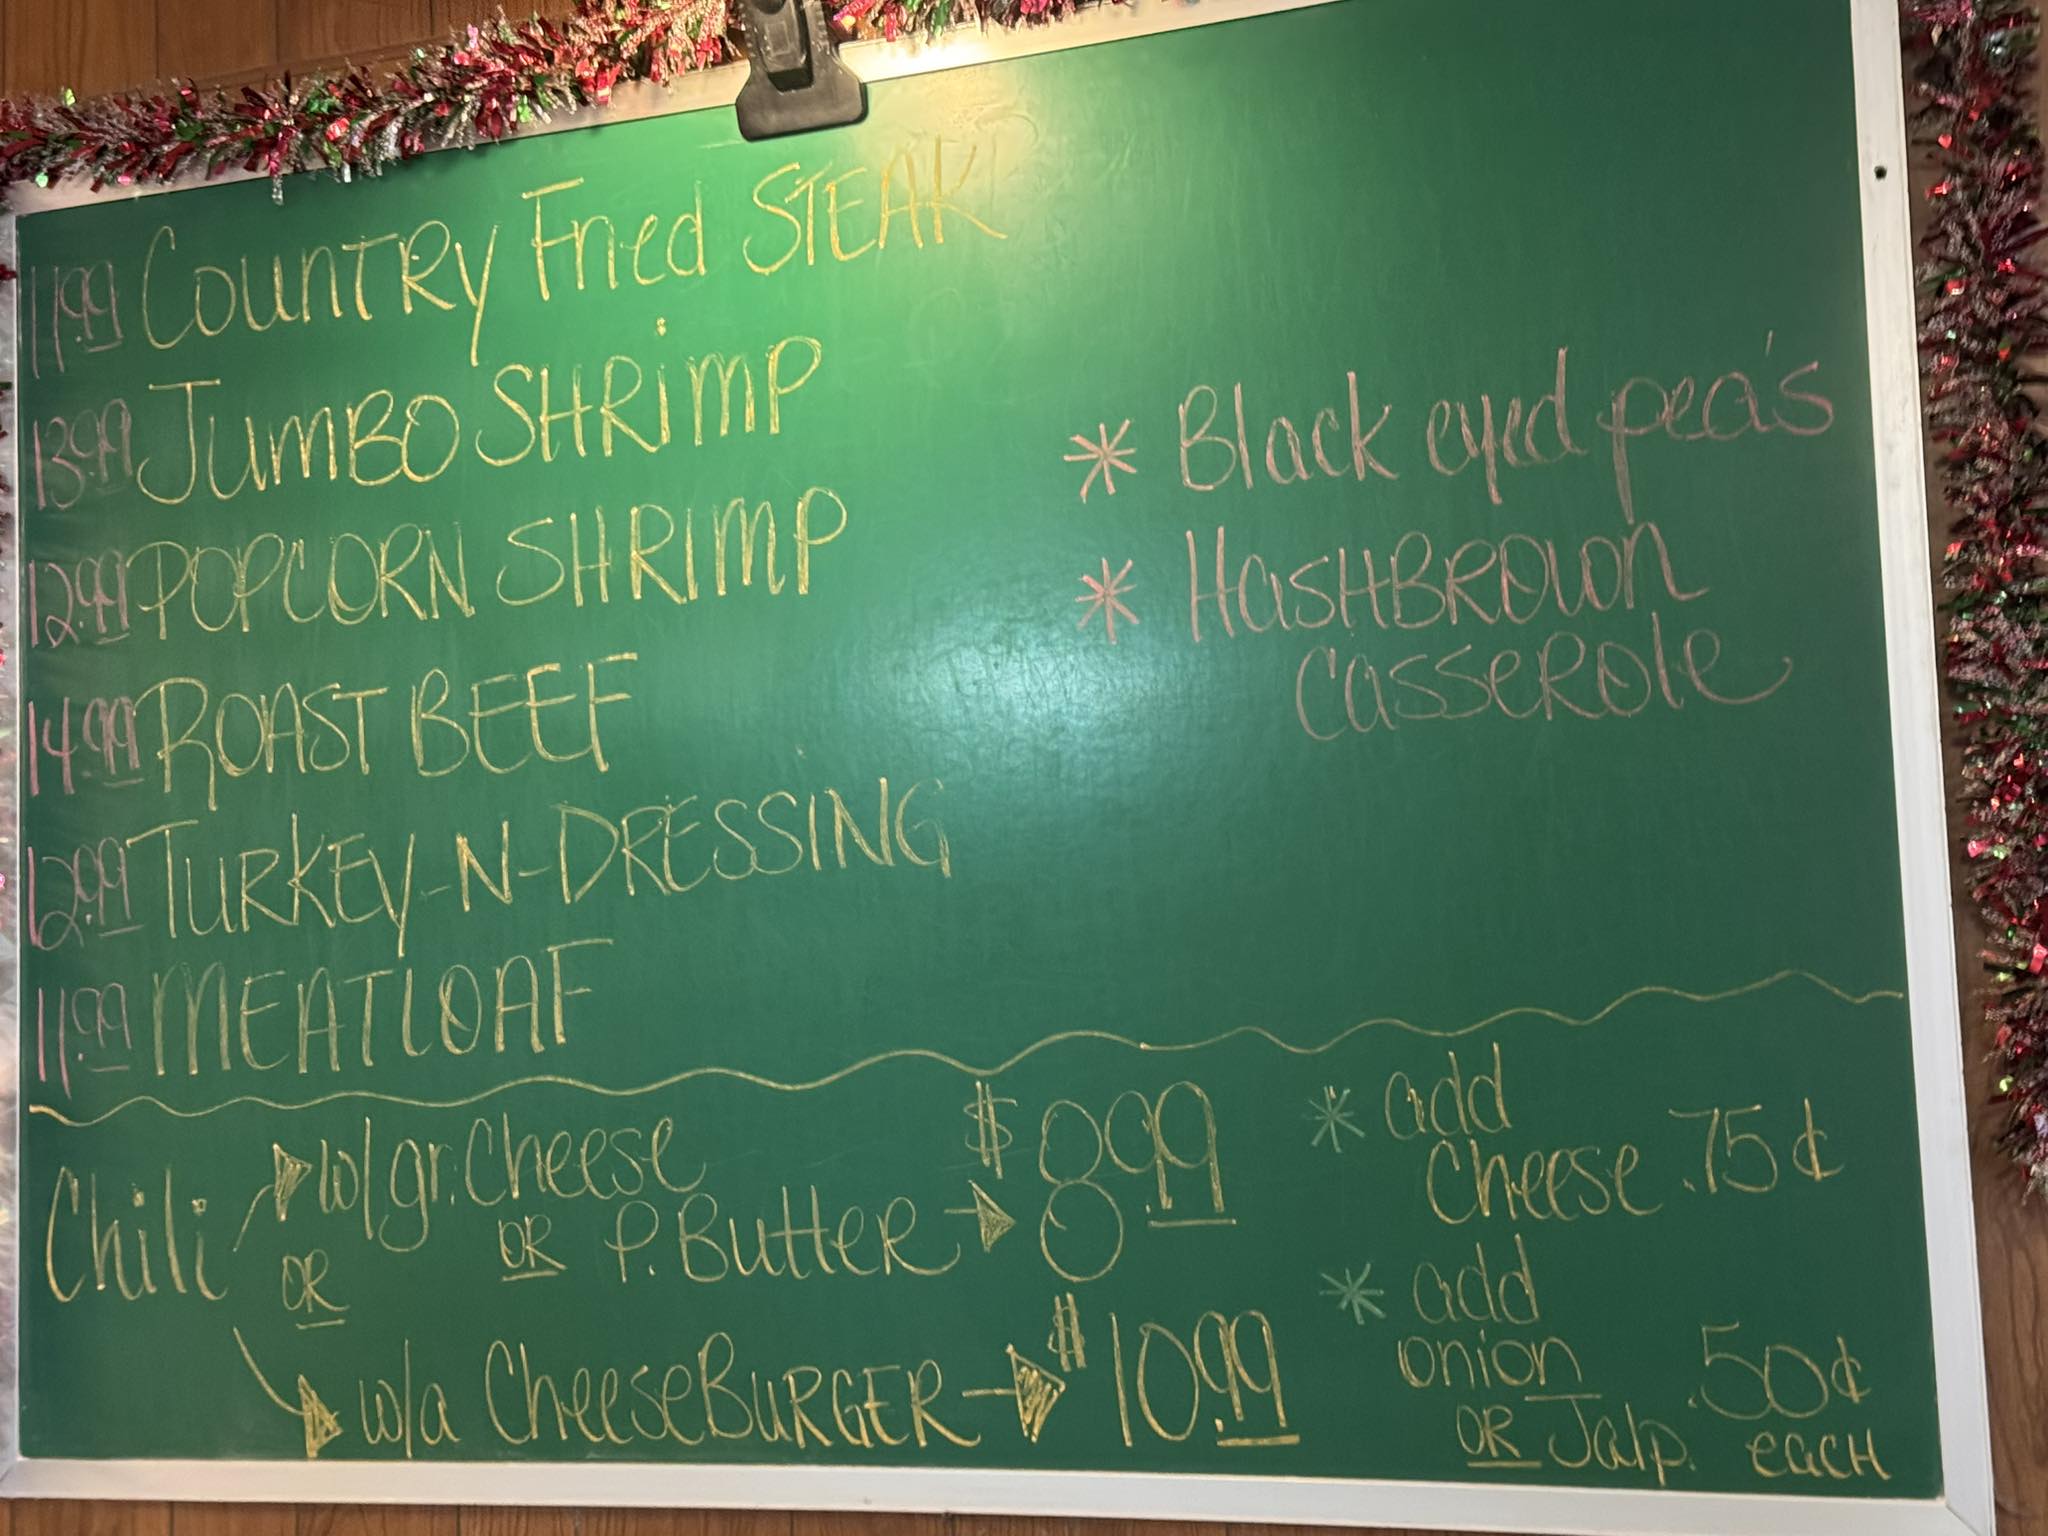 11.99 Country Fried STEAK
13.99 Jumbo SHRiMP
12.99 POPCORN SHRIMP
14.99 ROAST BEEF
12.99 TURKEY-N-DRESSING
11.99 MEATLOAF
* Black eyed pea's
* HASHBROWN
CASSEROLE
Chili
w/gr. Cheese
OR P. Butter $8.99
OR
w/a CheeseBURGER $10.99
* add
Cheese .75¢
* add
onion
OR Jalp. .50¢
each